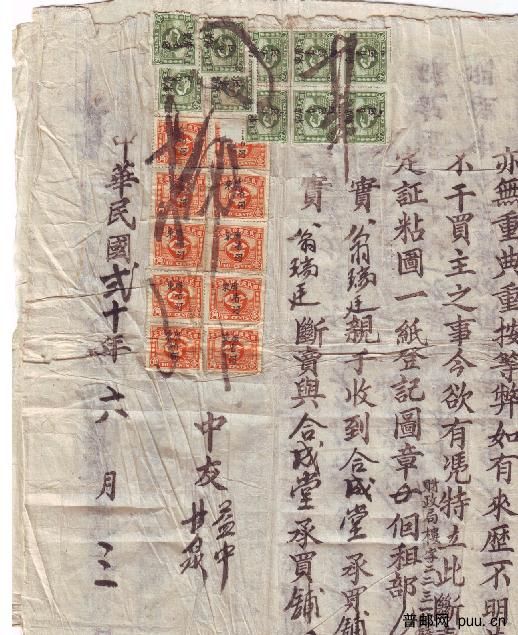 亦無重典重按等弊如有来歷不明
不干買主之事今欲有凭特立此斷
財政局樓字三三三
定証粘圖一紙登記圖章 個租部
實翁瑞廷親手收到合成堂承買舖
實翁瑞廷斷賣與合成堂承買舖
中友益中
甘泉
中華民國弍十年六月三
普邮网 puu.cn